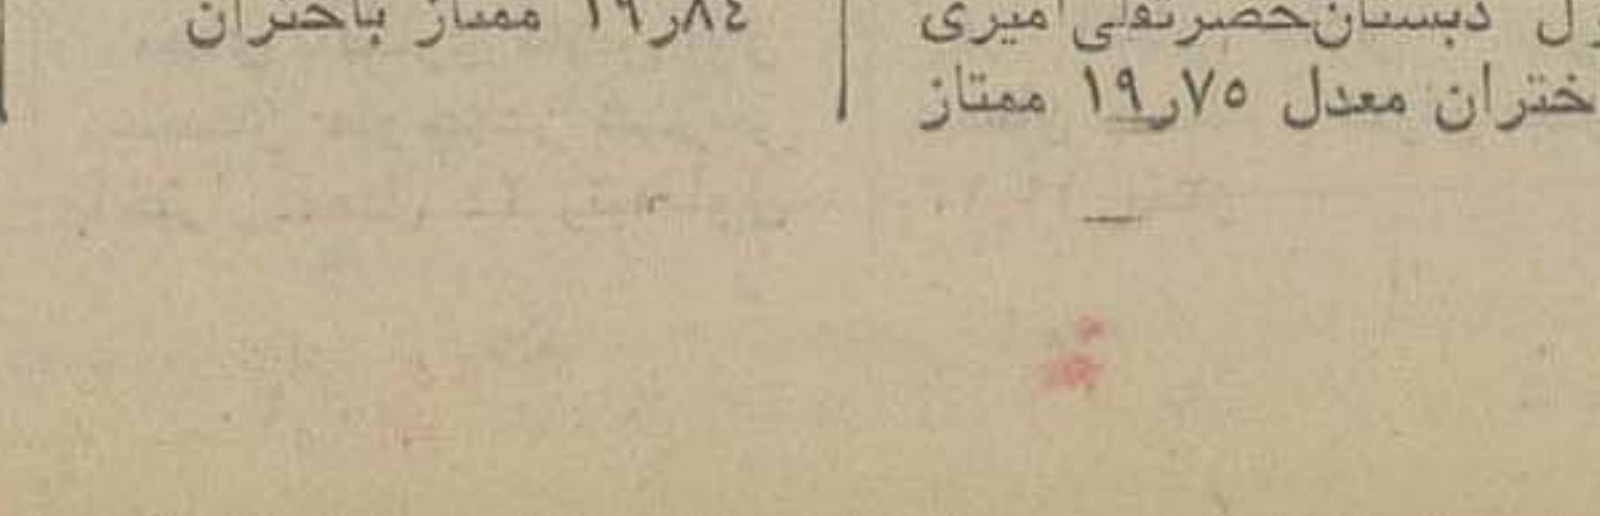 ل دبستان حضرتقلی امیری
ختران معدل ۱۹ر۷۵ ممتاز
۱۹ر۸٤ ممتاز باختران